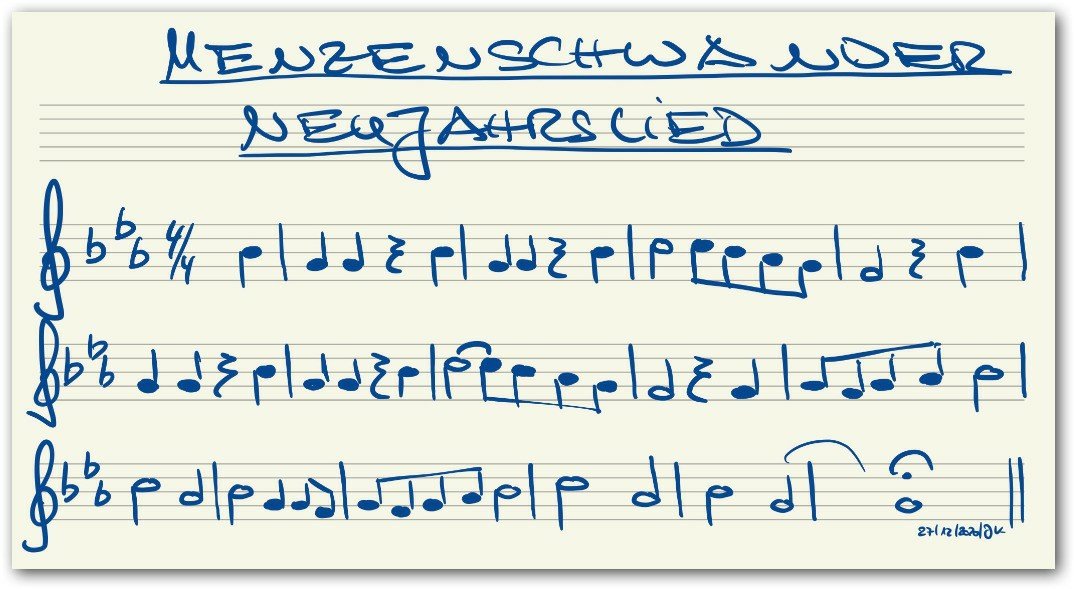 MENZENSCHWANDER
NEUJAHRSLIED
4/4
27/12/2020/JK